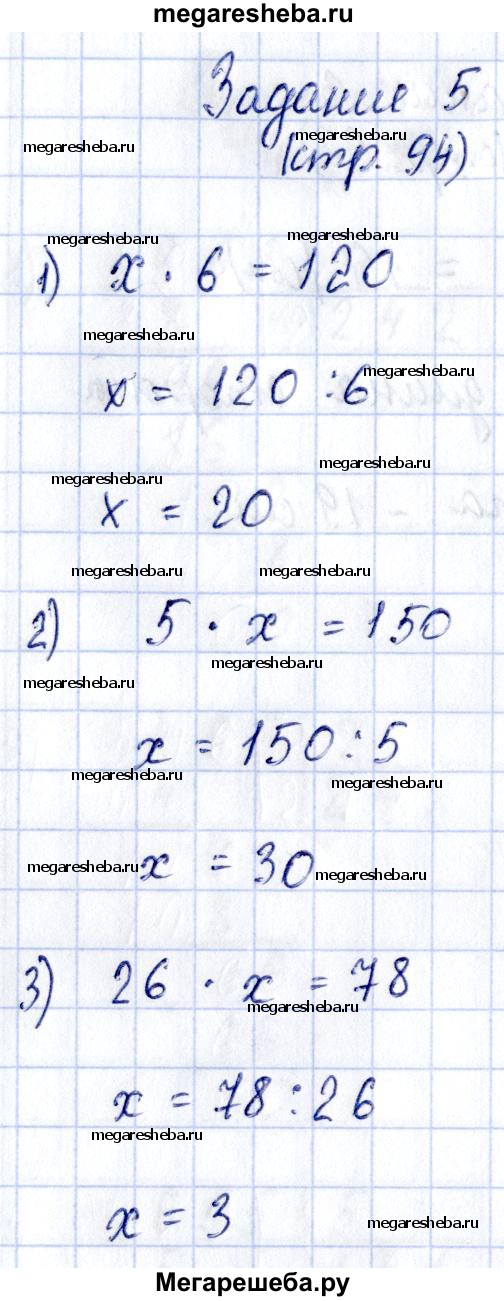 megaresheba.ru
Задание 5
megaresheba.ru megaresheba.ru
(стр. 94)
megaresheba.ru megaresheba.ru
1) x · 6 = 120
megaresheba.ru
x = 120 : 6
megaresheba.ru
megaresheba.ru megaresheba.ru
x = 20
megaresheba.ru megaresheba.ru
2) 5 · x = 150
megaresheba.ru
megaresheba.ru
x = 150 : 5
megaresheba.ru megaresheba.ru
megaresheba.ru x = 30 megaresheba.ru
3) 26 · x = 78
megaresheba.ru
x = 78 : 26
megaresheba.ru
x = 3 megaresheba.ru
Мегарешеба.ру